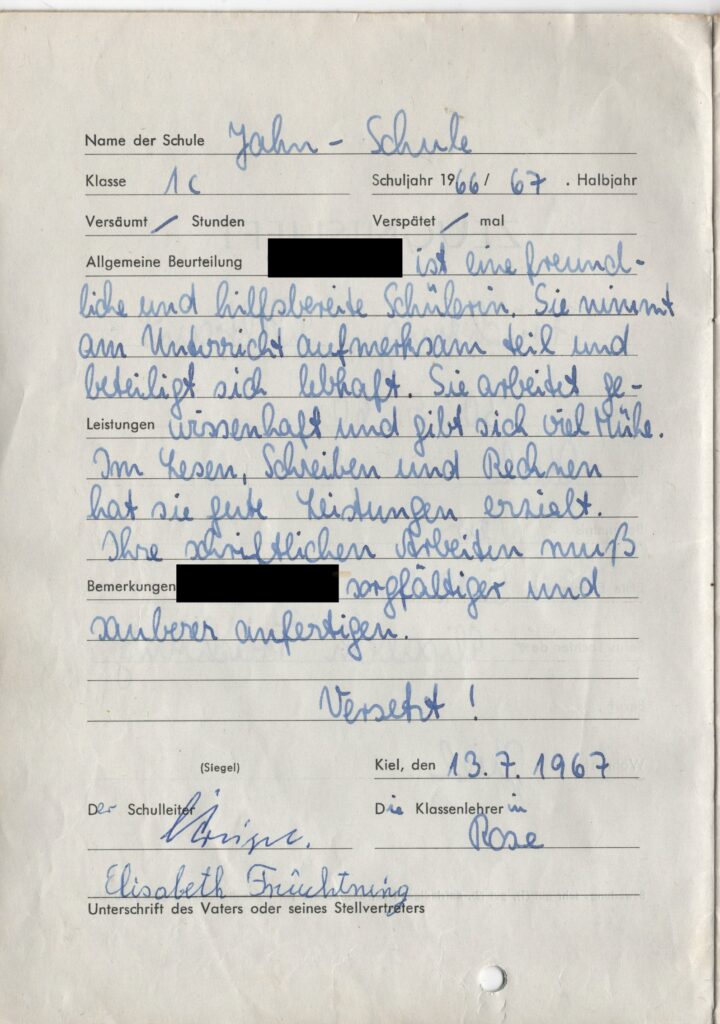 Name der Schule Jahn - Schule
Klasse 1c Schuljahr 1966/67 . Halbjahr
Versäumt / Stunden Verspätet / mal
Allgemeine Beurteilung ist eine freund-
liche und hilfsbereite Schülerin. Sie nimmt
am Unterricht aufmerksam teil und
beteiligt sich lebhaft. Sie arbeitet ge-
Leistungen wissenhaft und gibt sich viel Mühe.
Im Lesen, Schreiben und Rechnen
hat sie gute Leistungen erzielt.
Ihre schriftlichen Arbeiten muß
Bemerkungen sorgfältiger und
sauberer anfertigen.
Versetzt !
(Siegel) Kiel, den 13.7.1967
Der Schulleiter Die Klassenlehrerin
Rose
Elisabeth Früchtning
Unterschrift des Vaters oder seines Stellvertreters